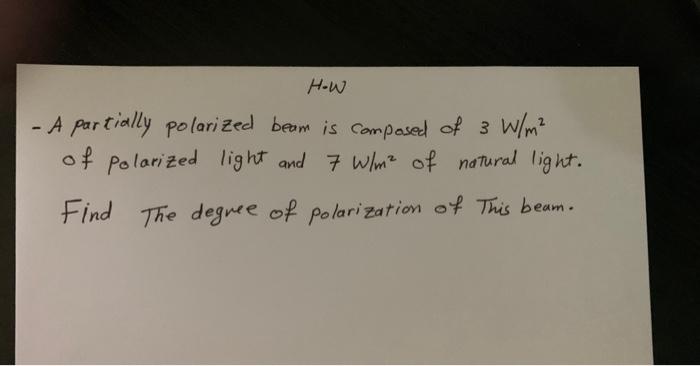 H-W
- A partially polarized beam is composed of 3 W/m²
of polarized light and 7 W/m² of natural light.
Find The degree of polarization of This beam.